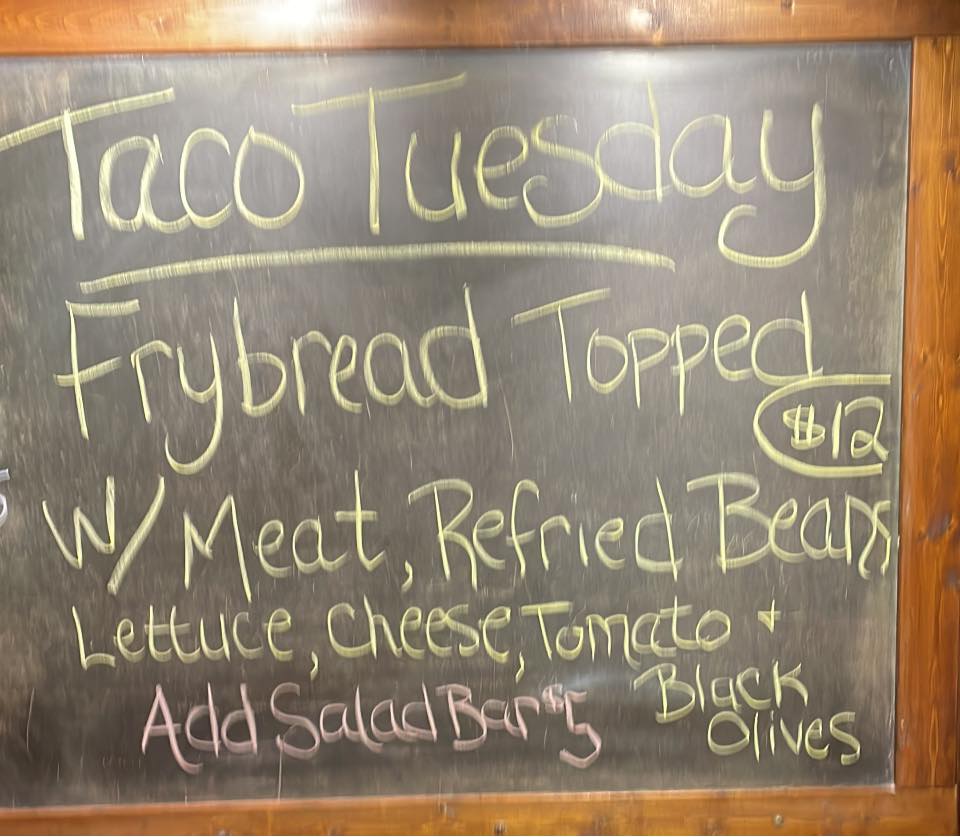 Taco Tuesday
Frybread Topped
$12
W/ Meat, Refried Beans
Lettuce, Cheese, Tomato +
Black
Olives
Add Salad Bar $5